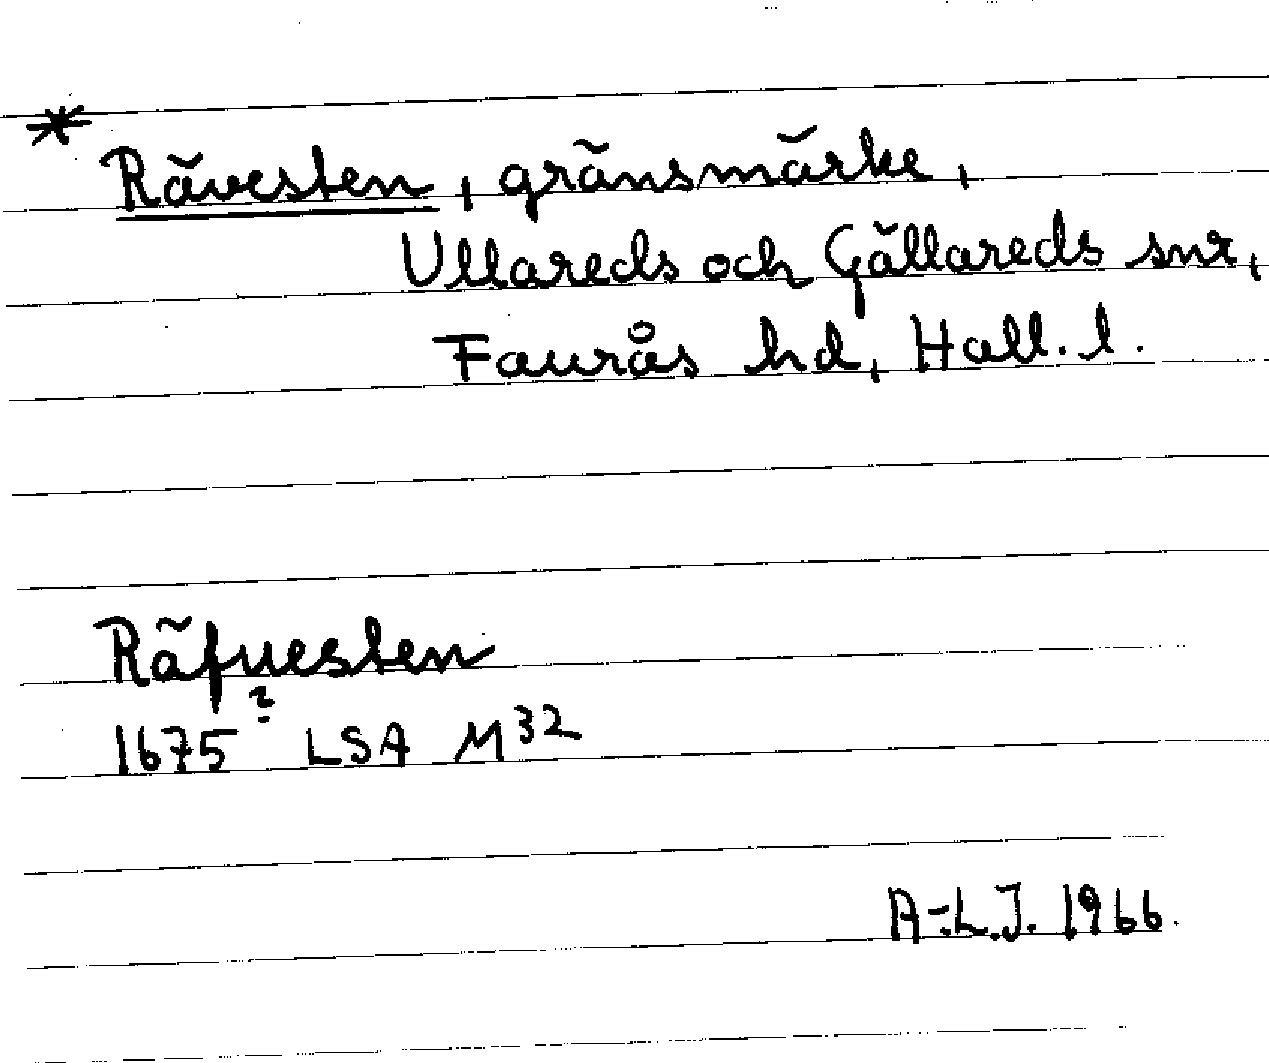 * Rävesten, gränsmärke,
Ullareds och Gällareds snr,
Faurås hd, Hall. l.
Räfuesten
?
1675 LSA M32
A-L.J. 1966.